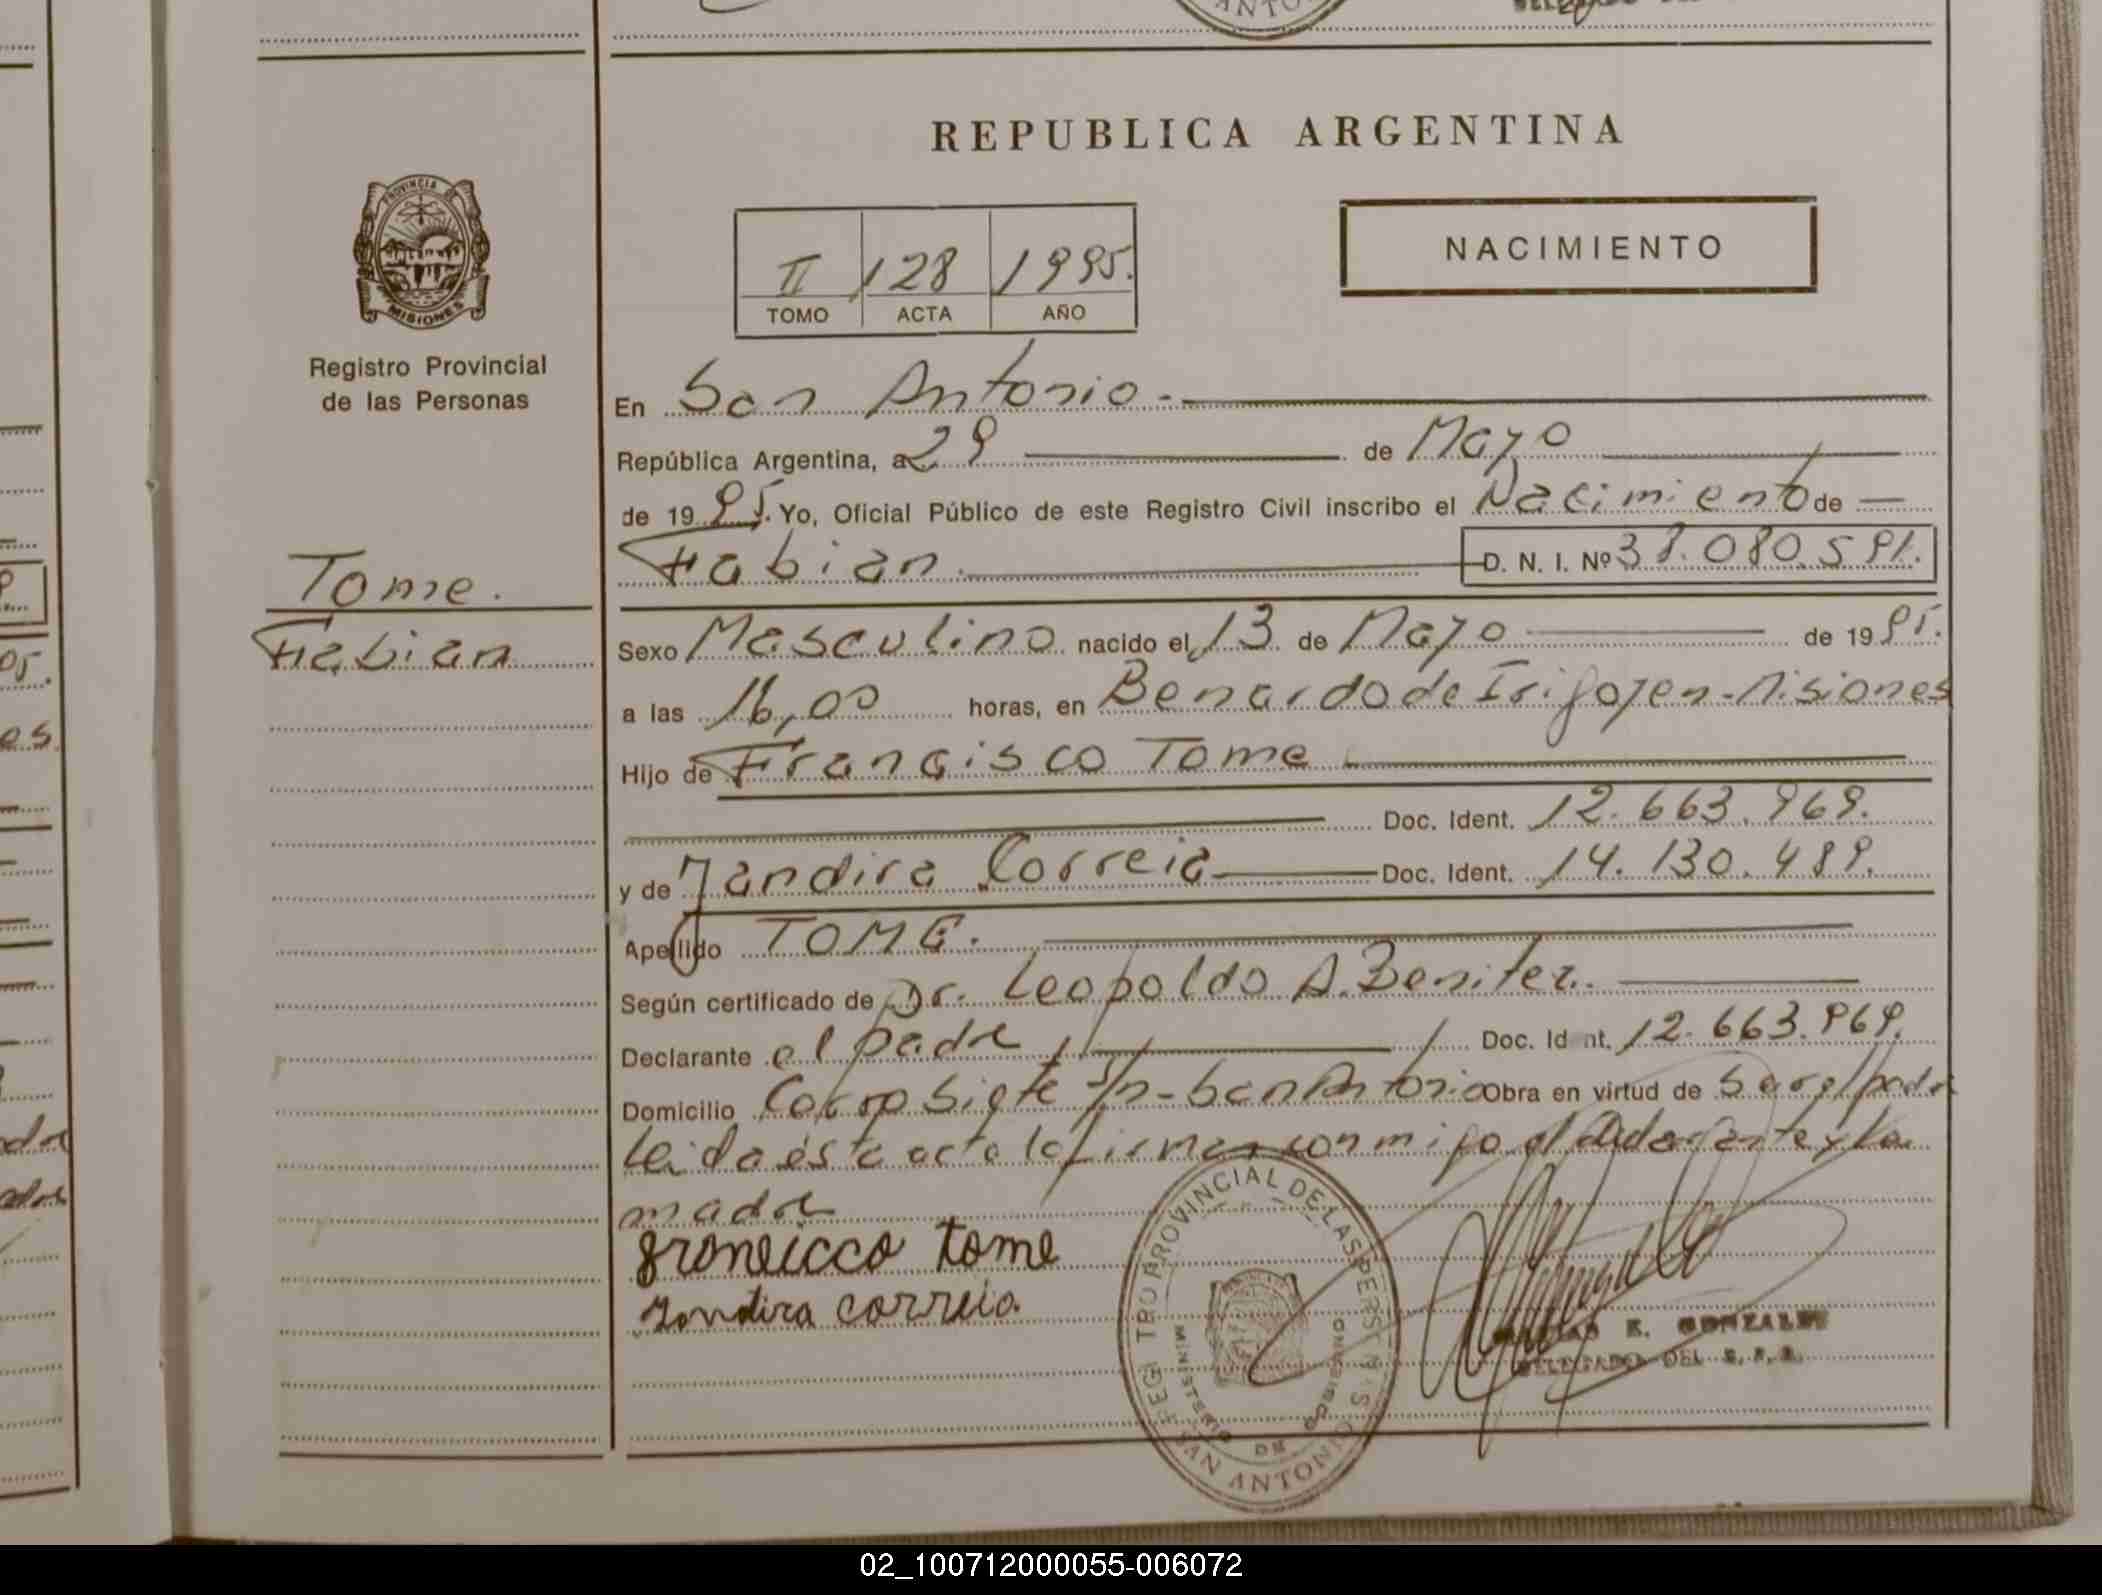 REPUBLICA ARGENTINA
NACIMIENTO
II 128 1995.
TOMO ACTA AÑO
PROVINCIA DE
MISIONES
Registro Provincial
de las Personas
Tome.
Fabian
En San Antonio.-
República Argentina, a 29 de Mayo
de 1995. Yo, Oficial Público de este Registro Civil inscribo el Nacimiento de
Fabian. D. N. I. Nº 38.080.591.
Sexo Masculino nacido el 13 de Mayo de 1995.
a las 16,00 horas, en Bernardo de Irigoyen-Misiones
Hijo de Francisco Tome
Doc. Ident. 12.663.969.
y de Jandira Correia Doc. Ident. 14.130.489.
Apellido TOME.
Según certificado de Dr. Leopoldo A. Benitez.
Declarante el padre Doc. Ident. 12.663.969.
Domicilio siete S/n-San Antonio Obra en virtud de ser el padre
Leida ésta acta la firman conmigo el declarante y la
madre
Francicco tome
Jandira correia
REGISTRO PROVINCIAL DE LAS PERSONAS
MINISTERIO DE GOBIERNO
SAN ANTONIO
E. GONZALEZ
DELEGADO DEL
02_100712000055-006072